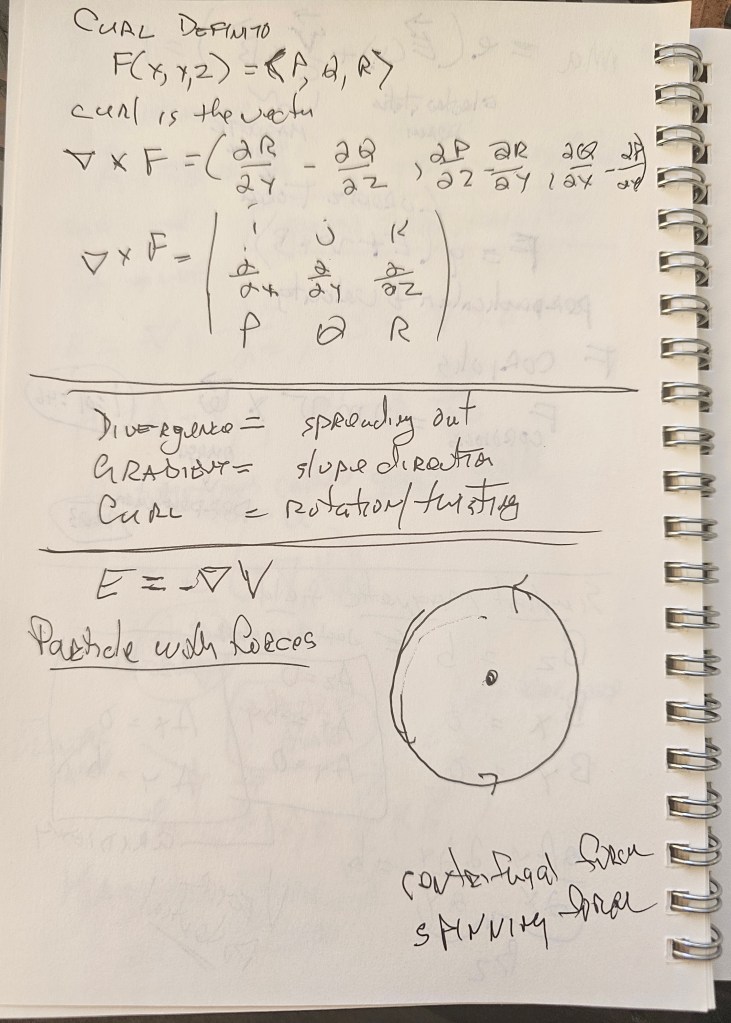 CURL DEFINITO
F(x, y, z) = <P, Q, R>
curl is the vector
∇ × F = (∂R/∂y - ∂Q/∂z , ∂P/∂z - ∂R/∂y , ∂Q/∂x - ∂P/∂y)
∇ × F = | i j k
∂/∂x ∂/∂y ∂/∂z
P Q R |
DIVERgence = spreading out
GRADIENT = slope direction
CURL = Rotation/twisting
E = -∇V
Particle with forces
centrifugal force
SPINNING force